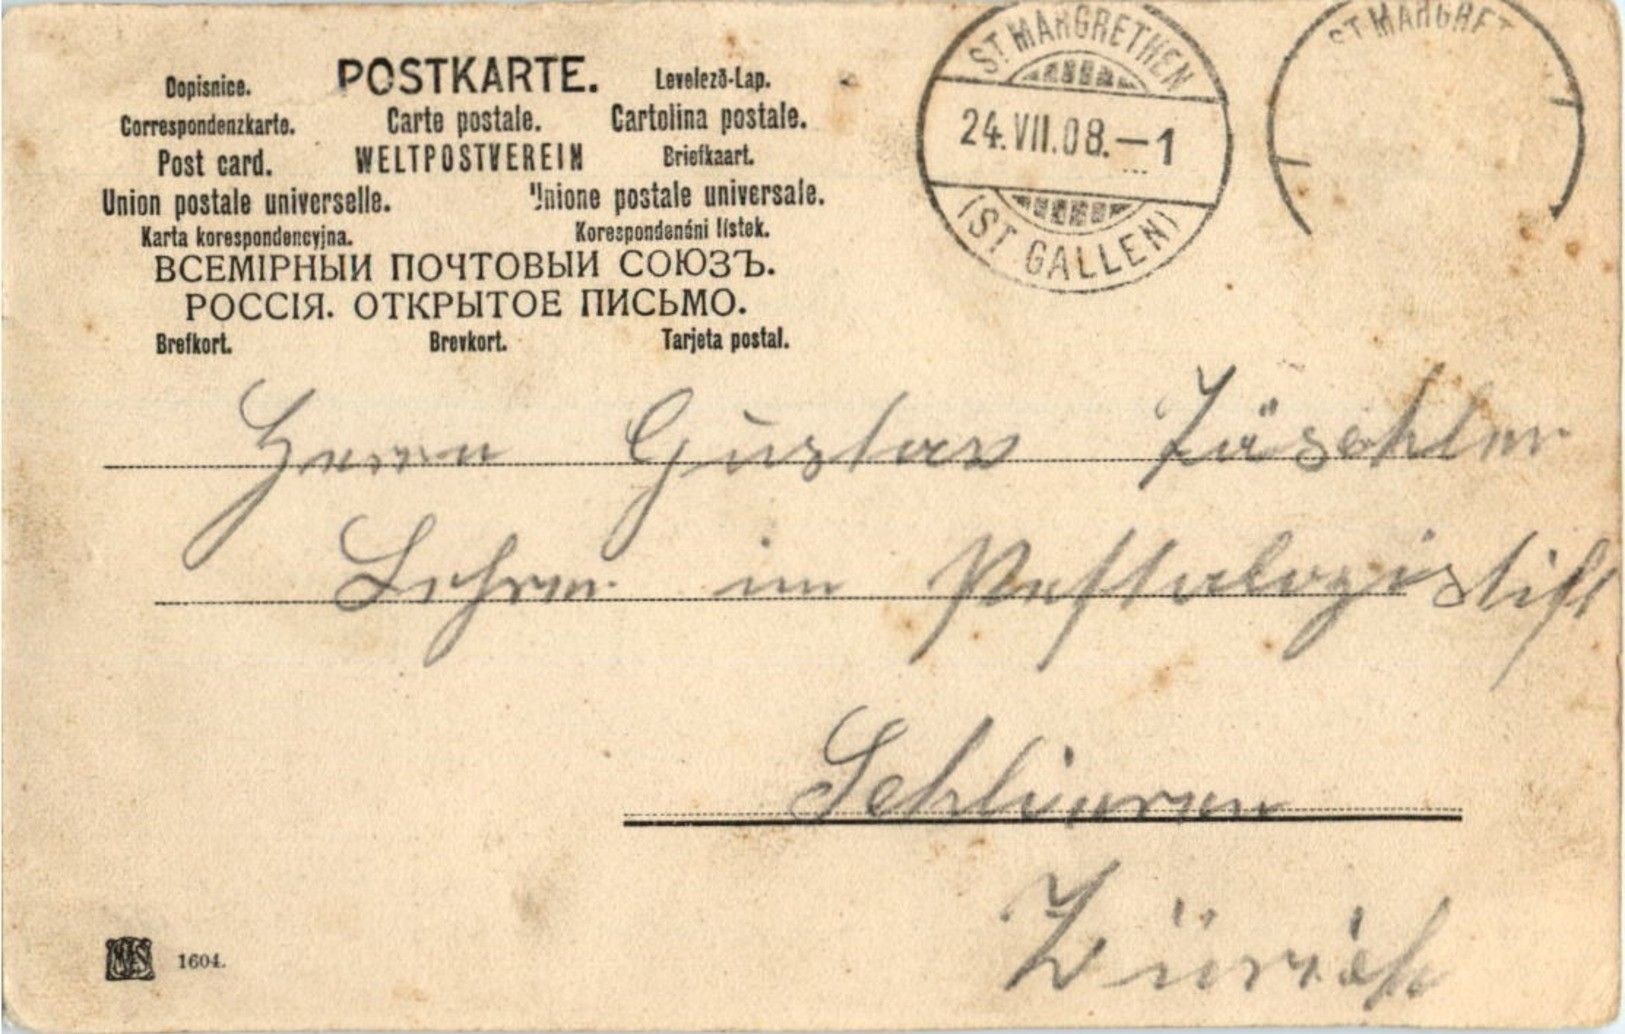 POSTKARTE.
Dopisnice. Levelező-Lap.
Correspondenzkarte. Carte postale. Cartolina postale.
Post card. WELTPOSTVEREIN Briefkaart.
Union postale universelle. Unione postale universale.
Karta korespondencyjna. Korespondenčni lístek.
ВСЕМІРНЫИ ПОЧТОВЫИ СОЮЗЪ.
РОССІЯ. ОТКРЫТОЕ ПИСЬМО.
Brefkort. Brevkort. Tarjeta postal.
ST MARGRETHEN
24.VII.08.–1
(ST GALLEN)
ST MARGRET
Herrn Gustav Zäschler
Lehrer im Pestalozzistift
Schlieren
Zürich
1604.